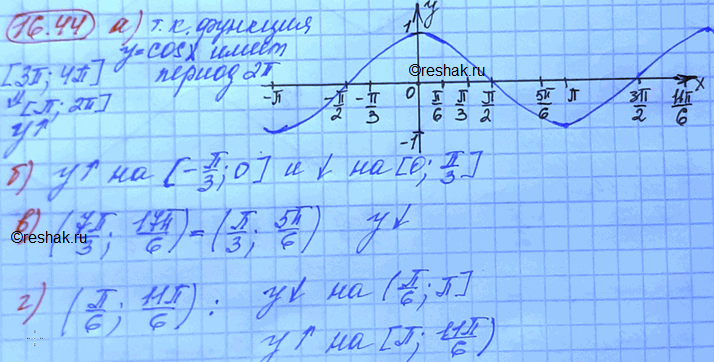 16.44 а) т.к. функция
y=cosx имеет
период 2π
[3π; 4π]
[π; 2π]
y↑
y
1
©reshak.ru
x
-π -π/2 -π/3 0 π/6 π/3 π/2 5π/6 π 3π/2 11π/6
-1
б) y↑ на [-π/3; 0] и ↓ на [0; π/3]
в) (7π/3; 17π/6) = (π/3; 5π/6) y↓
©reshak.ru
г) (π/6; 11π/6): y↓ на (π/6; π]
y↑ на [π; 11π/6)